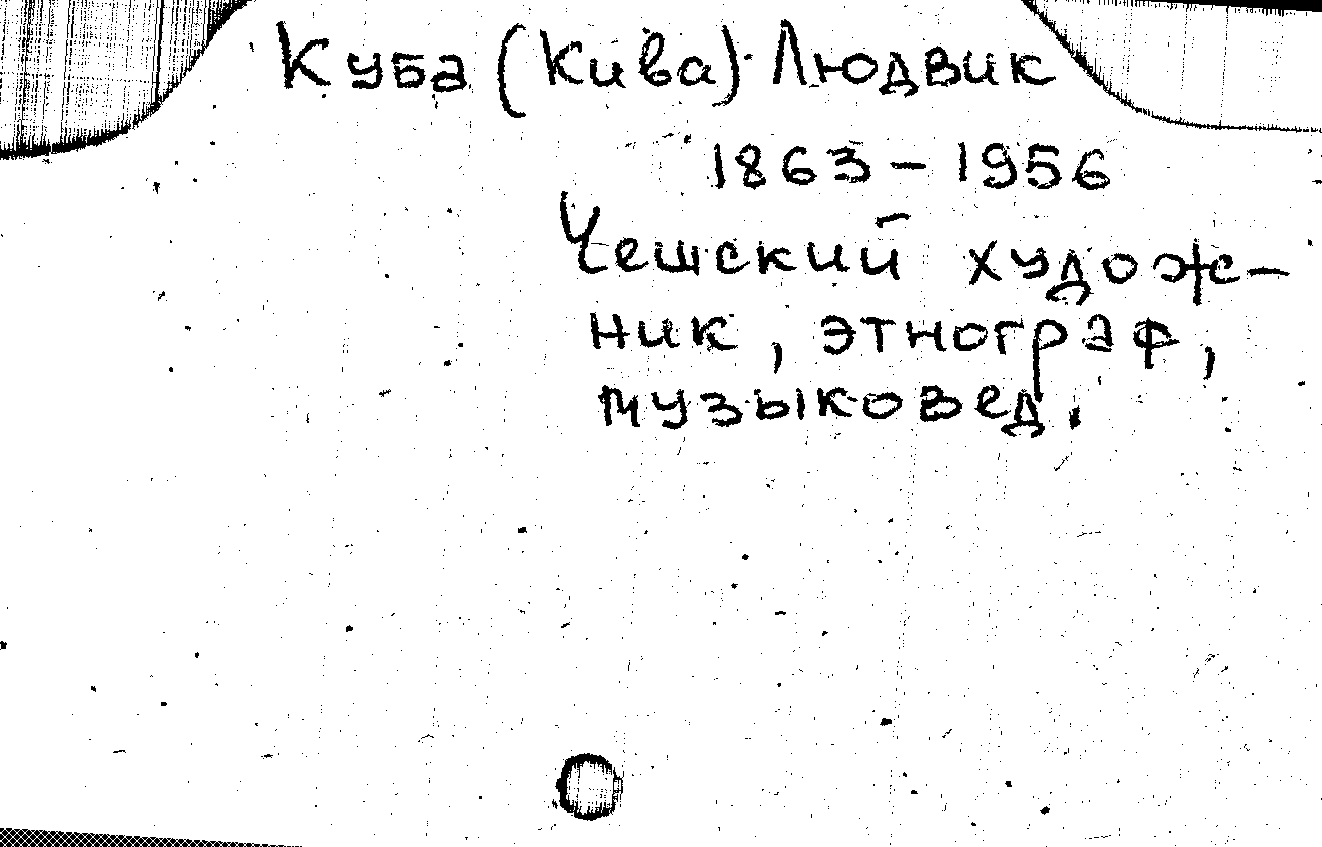 Куба (Kuba) Людвик
1863 – 1956
Чешский худож-
ник, этнограф,
музыковед.